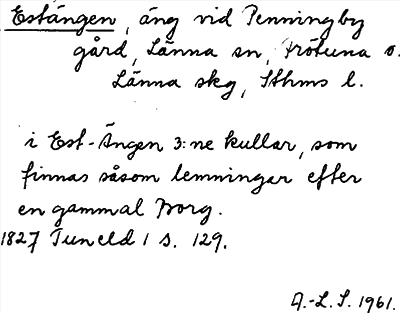 Estängen, äng vid Penningby
gård, Länna sn, Frötuna o.
Länna skg, Sthms l.
i Est-Ängen 3:ne kullar, som
finnas såsom lemningar efter
en gammal Borg.
1827 Tuneld 1 s. 129.
A.-L. S. 1961.